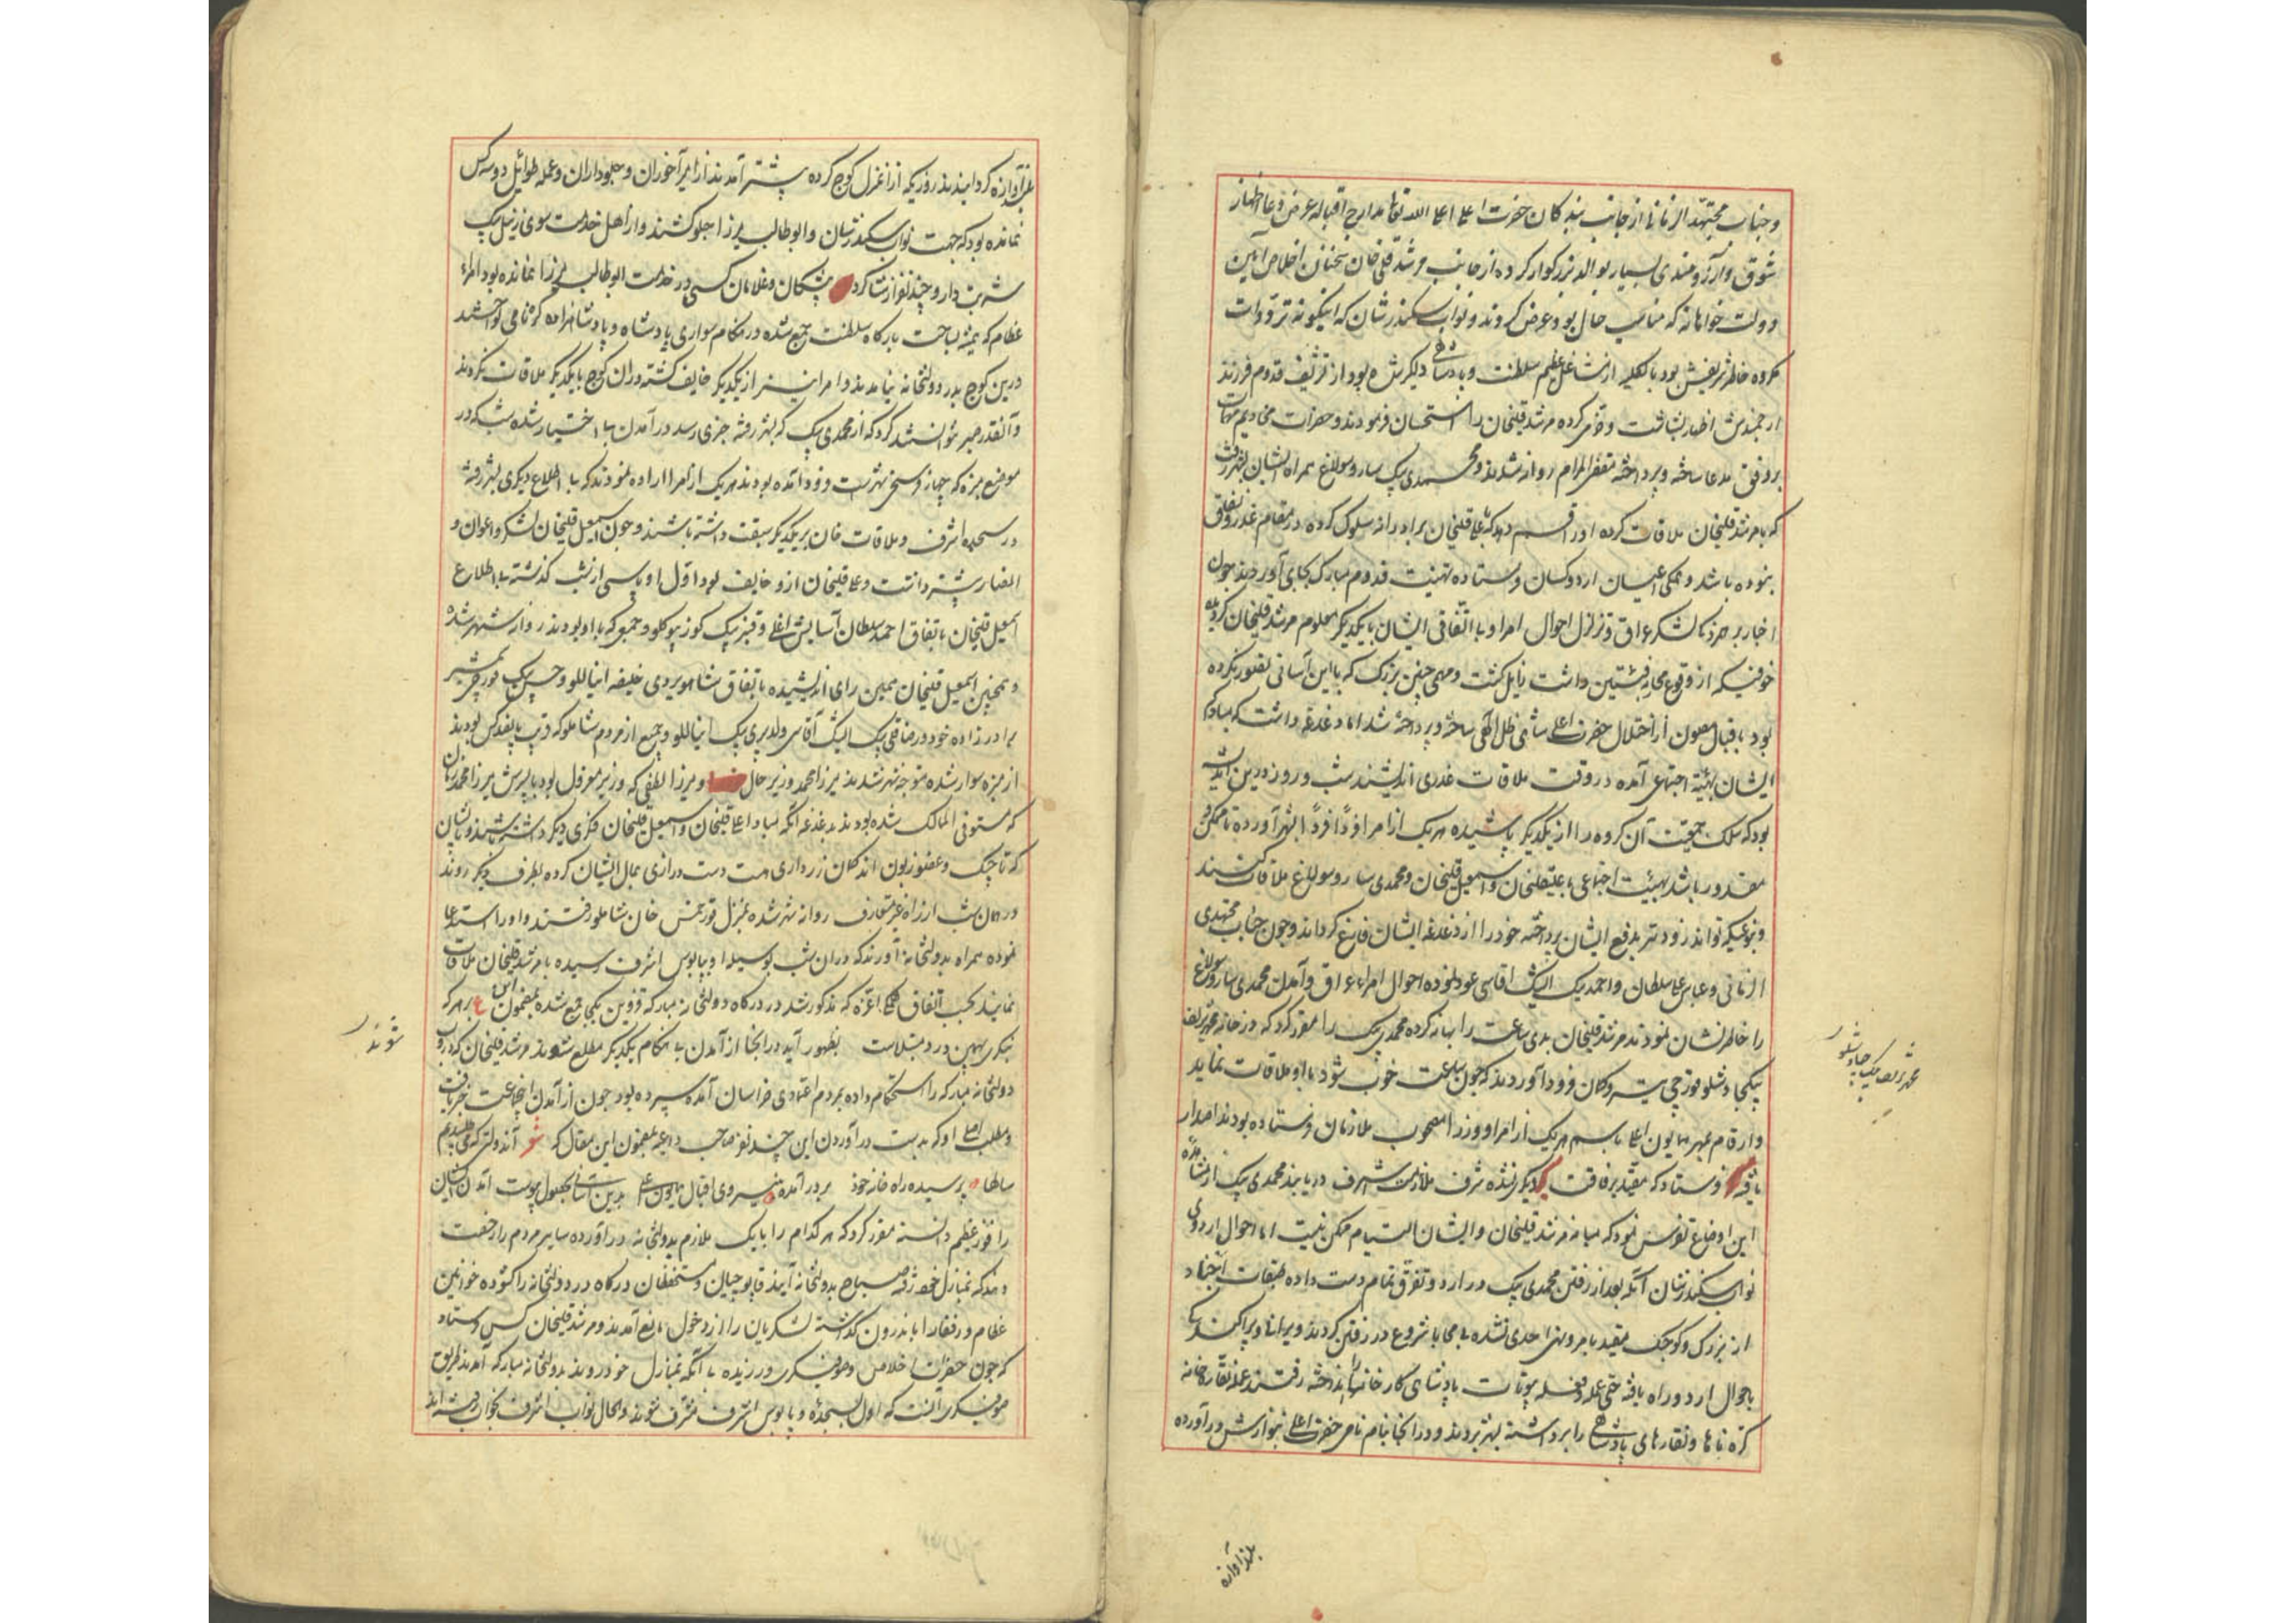 و جناب مجتهد الزمانی از جانب بندگان حضرت اعلی اعلی الله تعالی مدارج اقباله عرض دعا و اظهار
شوق و آرزومندی بسیار بوالد بزرگوار کرده از جانب مرشد قلی خان سخنان اخلاص آیین
دولت خواهانه که مناسب حال بود عرض کردند و نواب سکندر شان که اینگونه ترددات
مکروه خاطر شریفش بود بالکلیه از مشاغل عظیم سلطنت و پادشاهی دلگیر شده بود از تشریف قدوم فرزند
ارجمندش اظهار بشاشت و خرمی کرده مرشد قلیخان را استحسان فرمودند و حضرات مخادیم مهمات
بر وفق مدعا ساخته و پرداخته مقضی المرام روانه شدند و محمدی بیک ساروسولاغ همراه ایشان بشهر رفت
که با مرشد قلیخان ملاقات کرده او را قسم دهد که با علی قلیخان برادرانه سلوک کرده در مقام غدر و نفاق
نبوده باشد و تمامی اعیان اردو کسان فرستاده تهنیت قدوم مبارک بجای آوردند چون
اخبار بر هم زدگی لشکر عراق و تزلزل احوال امرا و بی اتفاقی ایشان با یکدیگر معلوم مرشد قلیخان گردید
خوفیکه از وقوع محاربه فئتین داشت زایل گشت و مهمی چنین بزرگ که باین آسانی تصور نکرده
بود باقبال مصون از اختلال حضرت اعلی شاهی ظل الهی ساخته و پرداخته شد اما دغدغه داشت که مبادا
ایشان بهیئة اجتماعی آمده در وقت ملاقات غدری اندیشند شب و روز درین اندیشه
بود که سلک جمعیت آن گروه را از یکدیگر پاشیده هر یک از امرا فرداً فرداً بشهر آورده تا ممکن و
مقدور باشد بهیئت اجتماعی با علیقلیخان و اسمعیل قلیخان و محمدی ساروسولاغ ملاقات نکنند
و بنوعیکه تواند زودتر بدفع ایشان پرداخته خود را از دغدغه ایشان فارغ گرداند و چون جناب مجتهدی
الزمانی و عباس علی سلطان و احمد بیک ایشیک اقاسی عود نموده احوال امراء عراق و آمدن محمدی ساروسولاغ
را خاطر نشان نمودند مرشد قلیخان بدی ساعت را بهانه کرده محمدی بیک را مقرر کرد که در خانه محمد شریف
بیک چاوشلو قورچی تیر و کمان فرود آوردند که چون ساعت خوب شود با او ملاقات نماید
و ارقام بمهر همایون اعلی باسم هر یک از امرا و وزرا مصحوب ملازمان فرستاده بودند اصدار
یافته فرستاد که مقید برفاقت یکدیگر نشده شرف ملازمت اشرف دریابند محمدی بیک از مشاهده
این اوضاع تفرس نمود که میانه مرشد قلیخان و ایشان التیام ممکن نیست اما احوال اردوی
نواب سکندر شان آنکه بعد از رفتن محمدی بیک در اردو تفرق تمام دست داده طبقات اجناد
از بزرگ و کوچک مقید بامر و نهی احدی نشده بی محابا شروع در رفتن کردند ویرانی و پراکندگی
باحوال اردو راه یافته حتی عمله و فعله بیوتات پادشاهی کارخانها را انداخته رفتند عمله نقاره خانه
کره نایها و نقارهای پادشاهی را برداشته بشهر بردند و در انجا بنام نامی حضرت اعلی بنوازش درآورده
محمد شریف بیک چاوشلو
بلند آوازه
بلند آوازه گردانیدند روزیکه از ان منزل کوچ کرده پیشتر آمدند از امیر آخوران و جلوداران و عمله طوایل دو سه کس
نمانده بود که جهت نواب سکندر شان و ابو طالب میرزا جلو کشند و از اهل خدمت سوی زینل بیک
شربت دار و چند نفر از شاگرد پیشگان و غلامان کسی در خدمت ابو طالب میرزا نمانده بود امراء
عظام که همیشه بساحت بارگاه سلطنت جمع شده در هنگام سواری پادشاه و پادشاهزاده کرنا می نواختند
درین کوچ بدر دولتخانه نیامدند و امرا نیز از یکدیگر خایف گشته در ان کوچ با یکدیگر ملاقات نکردند
و آنقدر صبر نتوانستند کرد که از محمدی بیک که بشهر رفته خبری رسد در آمدن بی اختیار شده شب که در
موضع مزره که چهار فرسخی شهر است فرود آمده بودند هر یک از امرا اراده نمودند که بی اطلاع دیگری بشهر رفته
در سجده اشرف و ملاقات خان بر یکدیگر سبقت داشته باشند و چون اسمعیل قلیخان لشکر و اعوان و
انصار بیشتر داشت و علی قلیخان ازو خایف بود اول او پاسی از شب گذشته بی اطلاع
اسمعیل قلیخان باتفاق احمد سلطان آسایش اغلی و قنبر بیک کوزی بیوکلو و جمعی که با او بودند روانه شهر شد
و همچنین اسمعیل قلیخان همین رای اندیشیده باتفاق شاهویردی خلیفه اینانلو و حسن بیک قورچی شمشیر
برادرزاده خود و رضا قلی بیک ایشیک آقاسی ولد پری بیک اینانلو و جمعی از مردم شاملو که قریب بپانصد کس بودند
از مزره سوار شده متوجه شهر شدند میرزا محمد وزیر حال و میرزا لطفی که وزیر معزول بود با پسرش میرزا محمد زمان
که مستوفی الممالک شده بودند بدغدغه آنکه مبادا علی قلیخان و اسمعیل قلیخان فکری دیگر داشته باشند و بایشان
که تاجیک و عضو زبون اند گمان زرداری هست دست درازی بمال ایشان کرده بطرف دیگر روند
در همان شب از راه غیر متعارف روانه شهر شده بمنزل قورخمس خان شاملو رفتند و او را استدعا
نموده همراه بدولتخانه آورند که در ان شب بوسیله او بپابوس اشرف رسیده با مرشد قلیخان ملاقات
نمایند بحسب اتفاق اعزه که مذکور شد در درگاه دولتخانه مبارکه قزوین یکجا جمع شده بمضمون این ع بهر که
بنگری بهمین درد مبتلاست بظهور آمد در انجا از آمدن بی هنگام یکدیگر مطلع شدند مرشد قلیخان که دروب
دولتخانه مبارکه را استحکام داده بمردم اعتمادی خراسان آمده سپرده بود چون از آمدن این جماعت خبر یافت
و مطلب اصلی او که بدست در آوردن این چند نفر صاحب داعیه بمضمون این مقال که شعر آن دولتی که می طلبیدیم
سالها پرسیده راه خانه خود بدر آمده نیروی اقبال همایون اعلی بدین آسانی بحصول پیوست آمدن ایشان
را فوز عظیم دانسته مقرر کرد که هر کدام را با یک ملازم بدولتخانه درآورده سایر مردم را رخصت
دهند که بمنازل خود رفته صباح بدولتخانه آیند قاپوچیان و مستحفظان درگاه در دولتخانه را گشوده خوانین
عظام و رفقا را باندرون گذاشته لشکریان را از دخول مانع آمدند و مرشد قلیخان کس فرستاد
که چون حضرات اخلاص و صوفیگری ورزیده بی آنکه بمنازل خود روند بدولتخانه مبارکه آمدند طریق
صوفیگری آنست که اول بسجده و پابوس اشرف مشرف شوند و الحال نواب اشرف بخواب رفته اند
شوند